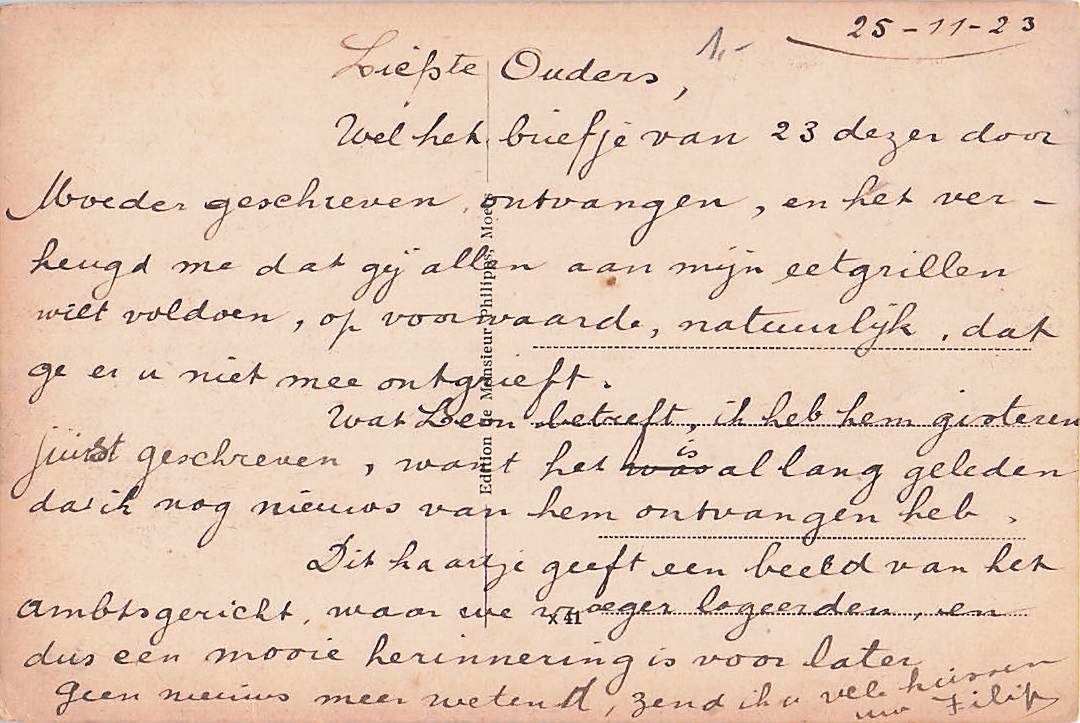 25-11-23
1,-
Liefste Ouders,
Wel het briefje van 23 dezer door
Moeder geschreven ontvangen, en het ver-
heugd me dat gij allen aan mijn eetgrillen
wilt voldoen, op voorwaarde, natuurlijk, dat
ge er u niet mee ontgrieft.
Wat Leon betreft, ik heb hem gisteren
juist geschreven, want het was is al lang geleden
dat ik nog nieuws van hem ontvangen heb.
Dit kaartje geeft een beeld van het
Ambtsgericht, waar we vroeger logeerden, en
dus een mooie herinnering is voor later
Geen nieuws meer wetend, zend ik u vele kussen
uw Filip
Edition de Monsieur Philipps, Moers
X 41